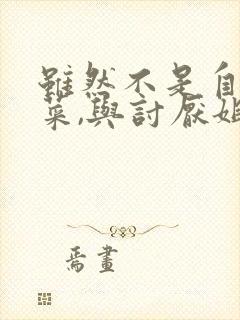 雖然不是自
菜,與討厭姐
焉畫